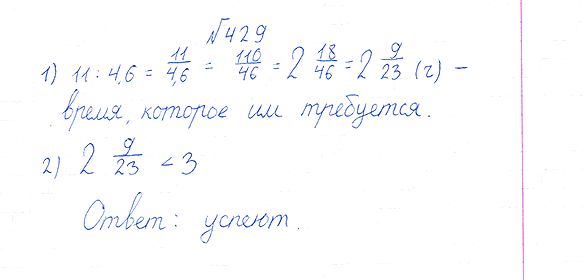 №429
1) 11 : 4,6 = 11/4,6 = 110/46 = 2 18/46 = 2 9/23 (ч) –
время, которое им требуется.
2) 2 9/23 < 3
Ответ: успеют.